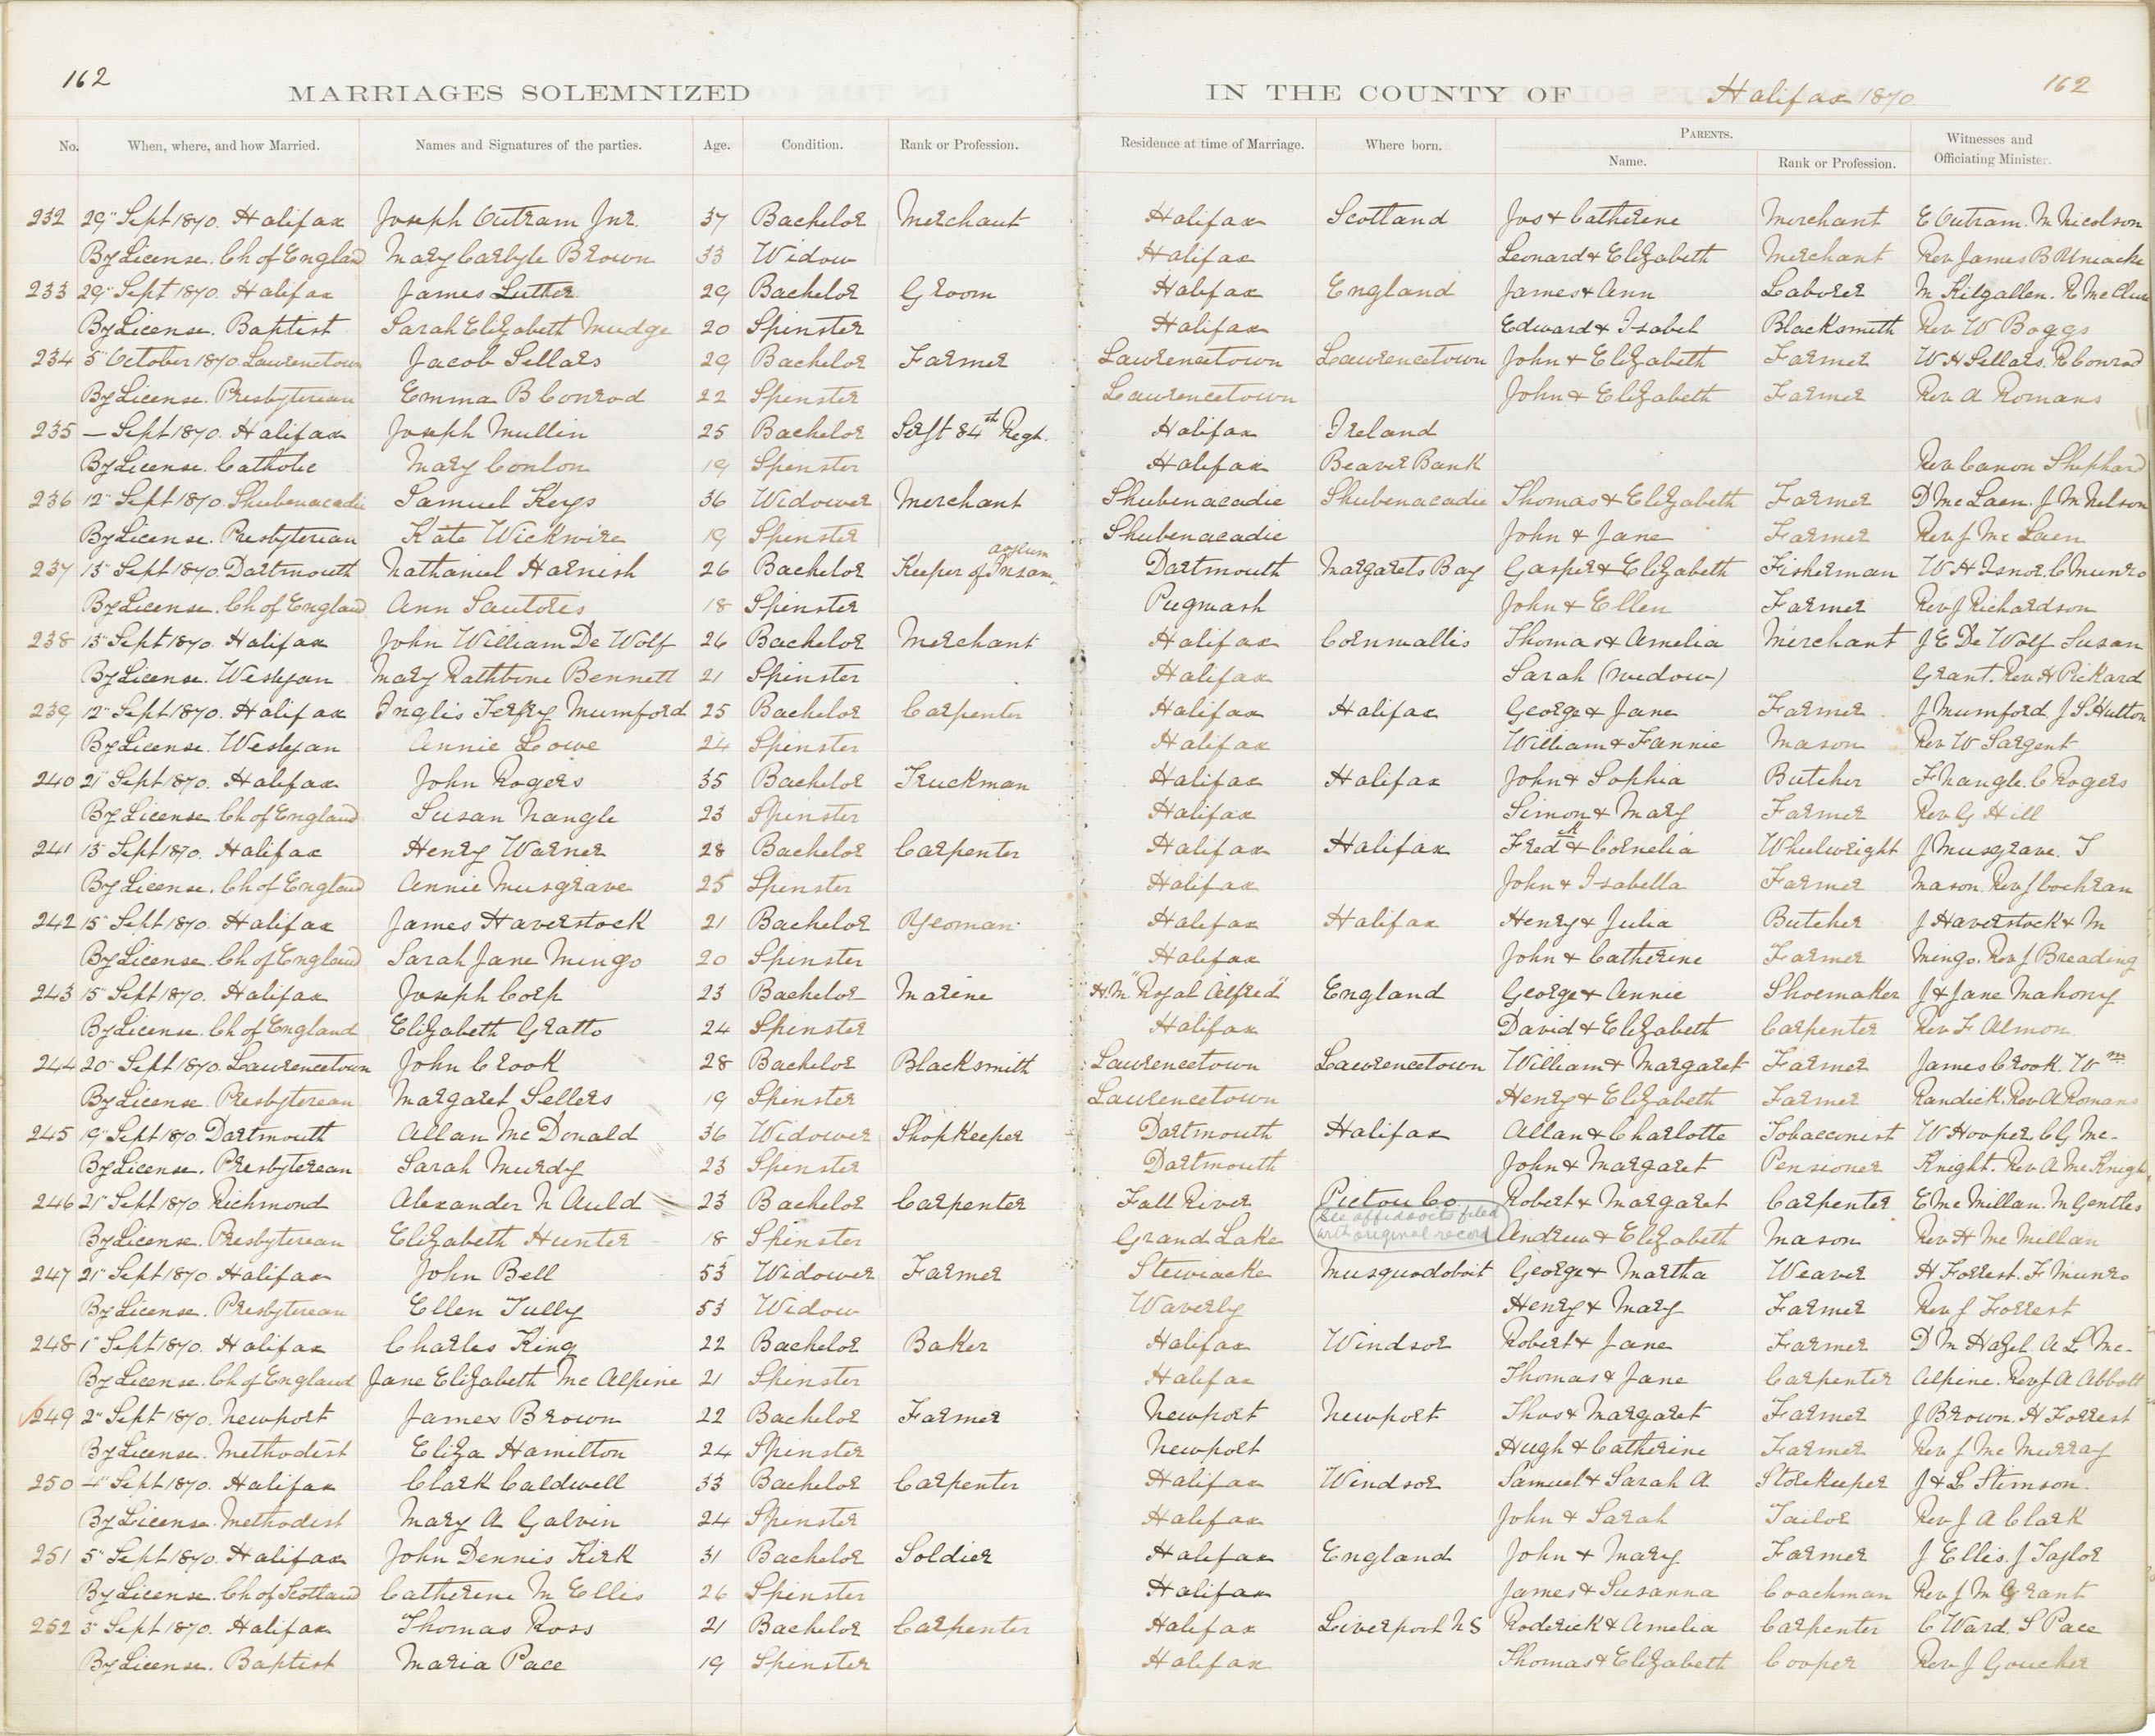 162
MARRIAGES SOLEMNIZED
IN THE COUNTY OF Halifax 1870
162
No. When, where, and how Married. Names and Signatures of the parties. Age. Condition. Rank or Profession. Residence at time of Marriage. Where born. PARENTS. Name. Rank or Profession. Witnesses and Officiating Minister.
232 29" Sept 1870. Halifax Joseph Outram Jnr. 37 Bachelor Merchant Halifax Scotland Jos & Catherine Merchant E Outram. M Nicolson
By License. Ch of England Mary Carlyle Brown 33 Widow Halifax Leonard & Elizabeth Merchant Rev James B Uniacke
233 29" Sept 1870. Halifax James Luther 29 Bachelor Groom Halifax England James & Ann Laborer M Kilgallen. R McClure
By License. Baptist Sarah Elizabeth Mudge 20 Spinster Halifax Edward & Isabel Blacksmith Rev W Boggs
234 5" October 1870. Lawrencetown Jacob Sellars 29 Bachelor Farmer Lawrencetown Lawrencetown John & Elizabeth Farmer W H Sellars. R Conrod
By License. Presbyterean Emma B Conrod 22 Spinster Lawrencetown John & Elizabeth Farmer Rev A Romans
235 — Sept 1870. Halifax Joseph Mullin 25 Bachelor Serjt 84th Regt. Halifax Ireland
By License. Catholic Mary Conlon 19 Spinster Halifax Beaver Bank Rev Canon Shephard
236 12" Sept 1870. Shubenacadie Samuel Keys 36 Widower Merchant Shubenacadie Shubenacadie Thomas & Elizabeth Farmer D McLaen. J M Nelson
By License. Presbyterean Kate Wickwire 19 Spinster Shubenacadie John & Jane Farmer Rev J McLaen
237 13" Sept 1870. Dartmouth Nathaniel Harnish 26 Bachelor Keeper of Insane asylum Dartmouth Margarets Bay Gasper & Elizabeth Fisherman W H Isnor. C Munro
By License. Ch of England Ann Sautores 18 Spinster Pugwash John & Ellen Farmer Rev J Richardson
238 13" Sept 1870. Halifax John William De Wolf 26 Bachelor Merchant Halifax Cornwallis Thomas & Amelia Merchant J E De Wolf Susan
By License. Wesleyan Mary Rathbone Bennett 21 Spinster Halifax Sarah (widow) Grant. Rev H Pickard
239 12" Sept 1870. Halifax Inglis Terfry Mumford 25 Bachelor Carpenter Halifax Halifax George & Jane Farmer J Mumford J S Hutton
By License. Wesleyan Annie Lowe 24 Spinster Halifax William & Fannie Mason Rev W Sargent
240 21" Sept 1870. Halifax John Rogers 35 Bachelor Truckman Halifax Halifax John & Sophia Butcher F Nangle. C Rogers
By License Ch of England Susan Nangle 23 Spinster Halifax Simon & Mary Farmer Rev G Hill
241 13" Sept 1870. Halifax Henry Warner 28 Bachelor Carpenter Halifax Halifax Fredk & Cornelia Wheelwright J Musgrave. T
By License. Ch of England Annie Musgrave 25 Spinster Halifax John & Isabella Farmer Mason. Rev J Cochran
242 15" Sept 1870. Halifax James Haverstock 21 Bachelor Yeoman Halifax Halifax Henry & Julia Butcher J Haverstock & M
By License. Ch of England Sarah Jane Mingo 20 Spinster Halifax John & Catherine Farmer Mingo. Rev J Breading
243 15" Sept 1870. Halifax Joseph Corp 23 Bachelor Marine H.M "Royal Alfred" England George & Annie Shoemaker J & Jane Mahony
By License. Ch of England Elizabeth Gratto 24 Spinster Halifax David & Elizabeth Carpenter Rev F Almon
244 20" Sept 1870. Lawrencetown John Crook 28 Bachelor Blacksmith Lawrencetown Lawrencetown William & Margaret Farmer James Crook. Wm
By License. Presbyterean Margaret Sellers 19 Spinster Lawrencetown Henry & Elizabeth Farmer Randick. Rev A Romans
245 19" Sept 1870. Dartmouth Allan McDonald 36 Widower Shopkeeper Dartmouth Halifax Allan & Charlotte Tobacconist W Hooper. C G Mc-
By License. Presbyterean Sarah Murdy 23 Spinster Dartmouth John & Margaret Pensioner Knight. Rev A McKnight
246 21" Sept 1870. Richmond Alexander N Auld 23 Bachelor Carpenter Fall River Pictou Co. Robert & Margaret Carpenter E McMillan. M Gentles
By License. Presbyterean Elizabeth Hunter 18 Spinster Grand Lake See affidavits filed with original record Andrew & Elizabeth Mason Rev H McMillan
247 21" Sept 1870. Halifax John Bell 53 Widower Farmer Stewiacke Musquodoboit George & Martha Weaver H Forrest. F Munro
By License. Presbyterean Ellen Tully 53 Widow Waverly Henry & Mary Farmer Rev J Forrest
248 1" Sept 1870. Halifax Charles King 22 Bachelor Baker Halifax Windsor Robert & Jane Farmer D M Hazel. A L Mc-
By License. Ch of England Jane Elizabeth McAlpine 21 Spinster Halifax Thomas & Jane Carpenter Alpine. Rev J A Abbott
249 2" Sept 1870. Newport James Brown 22 Bachelor Farmer Newport Newport Thos & Margaret Farmer J Brown. H Forrest
By License. Methodist Eliza Hamilton 24 Spinster Newport Hugh & Catherine Farmer Rev J McMurray
250 4" Sept 1870. Halifax Clark Caldwell 33 Bachelor Carpenter Halifax Windsor Samuel & Sarah A Storekeeper J & L Stimson.
By License. Methodist Mary A Galvin 24 Spinster Halifax John & Sarah Tailor Rev J A Clark
251 5" Sept 1870. Halifax John Dennis Kirk 31 Bachelor Soldier Halifax England John & Mary Farmer J Ellis. J Taylor
By License. Ch of Scotland Catherine M Ellis 26 Spinster Halifax James & Susanna Coachman Rev J M Grant
252 3" Sept 1870. Halifax Thomas Ross 21 Bachelor Carpenter Halifax Liverpool NS Roderick & Amelia Carpenter C Ward. S Pace
By License. Baptist Maria Pace 19 Spinster Halifax Thomas & Elizabeth Cooper Rev J Goucher